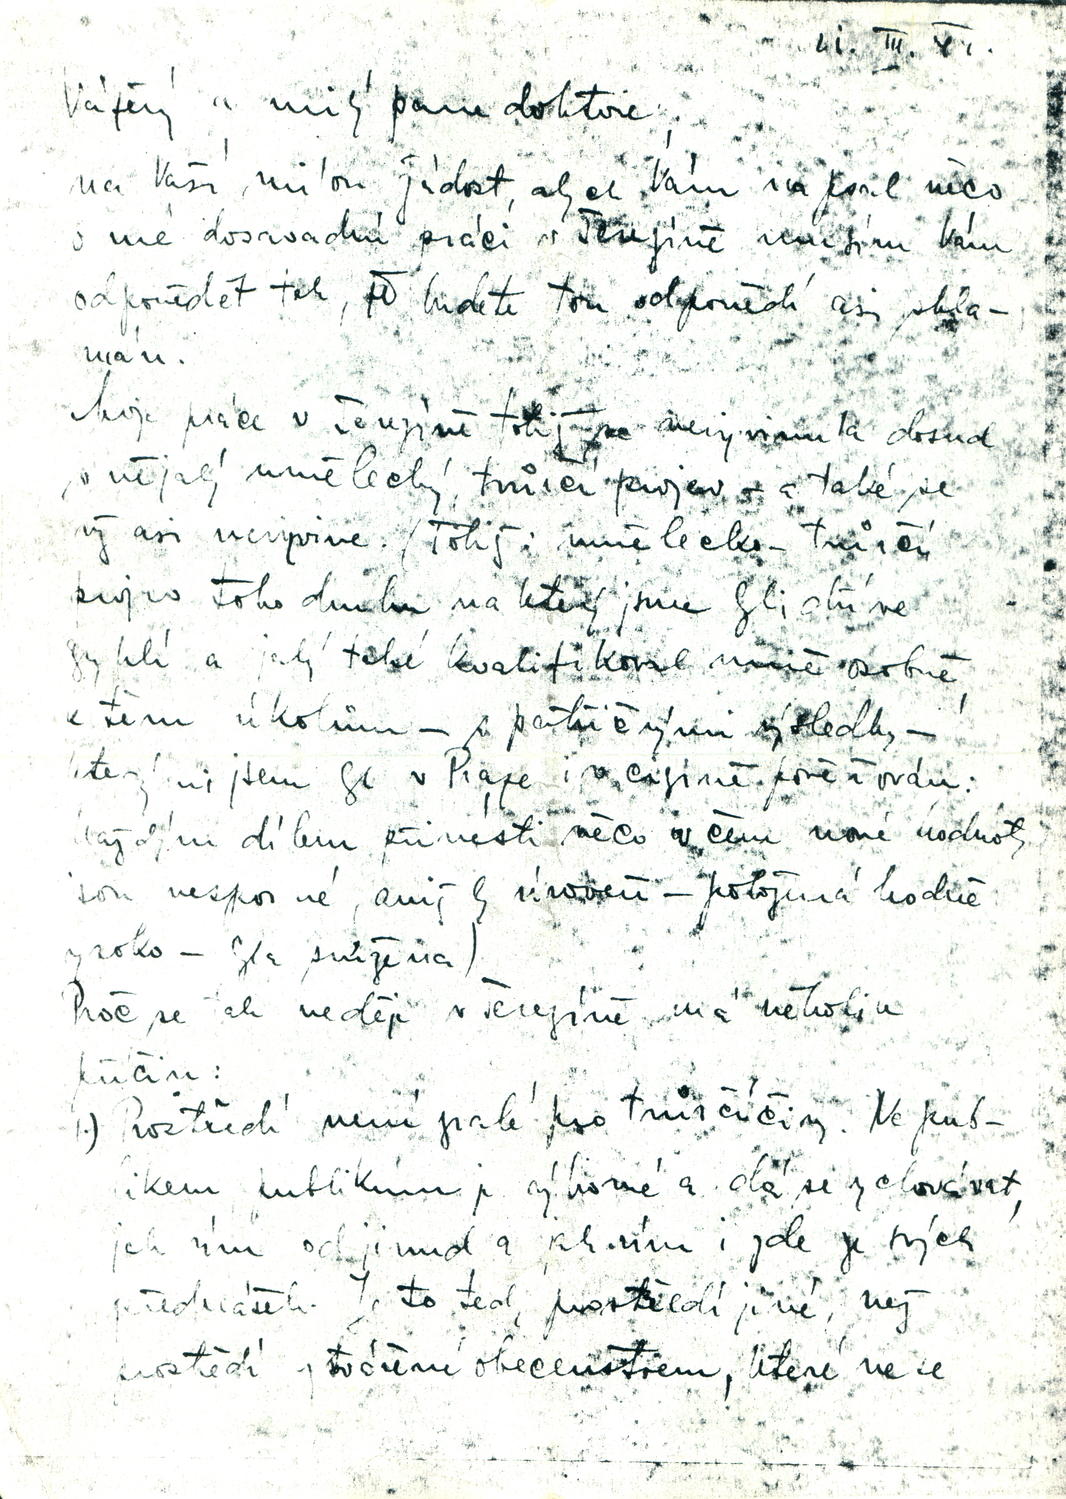 Vážený a milý pane doktore,
na Vaši milou žádost, abych Vám napsal něco
o mé dosavadní práci v Terezíně musím Vám
odpovědět tak, že budete tou odpovědí asi skla-
mán.
Moje práce v Terezíně totiž se nevyvinula dosud
v nějaký umělecký, tvůrčí projev – a také se
asi nevyvine. (Totiž: umělecko-tvůrčí
projev toho druhu na který jsme byli
zvyklí a jaký také kvalifikoval mne osobně
k těm úkolům – s patřičnými výsledky –
kterými jsem byl v Praze i v cizině pověřován:
každým dílem přinésti něco v čem nové hodnoty
jsou nesporné, aniž by úroveň – položená hodně
vysoko – byla snížena)
Proč se tak neděje v Terezíně má několik
příčin:
1.) Prostředí není zralé pro tvůrčí činy. Ne pub-
likem publikum je výborné a dá se vychovávat,
jak vím odjinud a jak vím i zde ze svých
přednášek. Je to tedy prostředí jiné, než
prostředí vytvářené obecenstvem, které ne ze